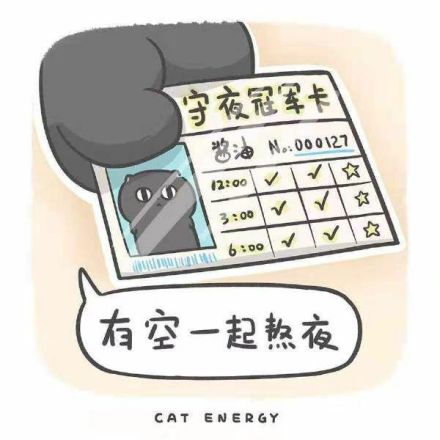 守夜冠军卡
酱油 No:000127
12:00 ✓ ✓ ☆
3:00 ✓ ✓ ☆
6:00 ✓ ✓ ☆
有空一起熬夜
CAT ENERGY